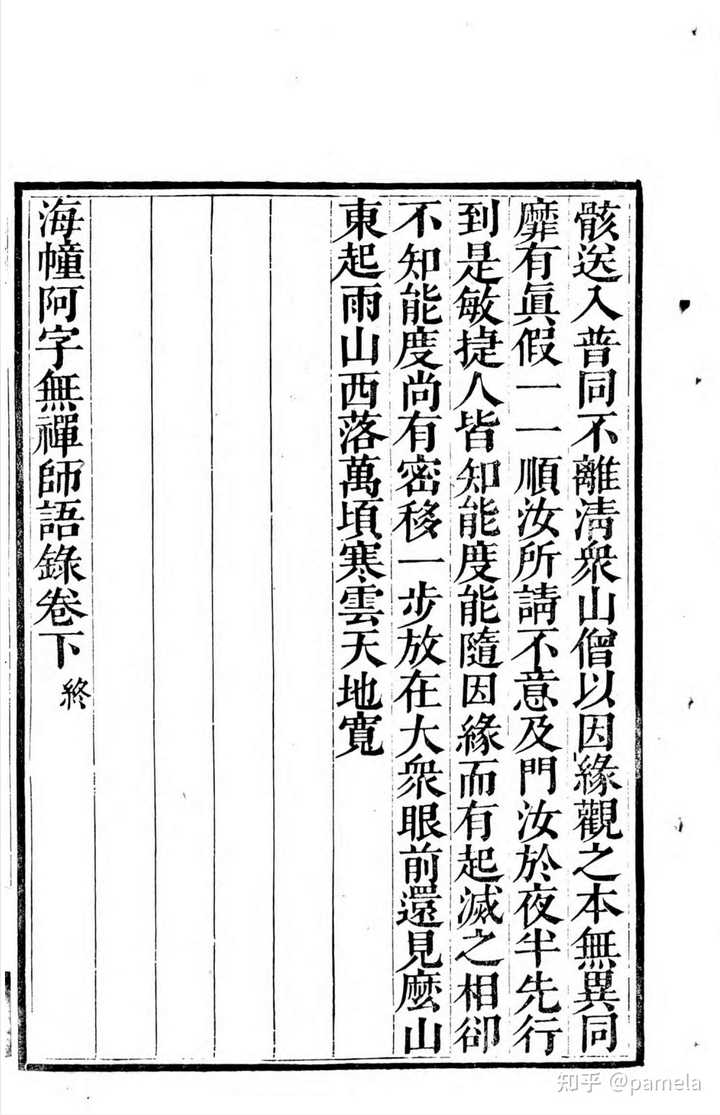 骸送入普同不離清衆山僧以因緣觀之本無異同
靡有眞假一一順汝所請不意及門汝於夜半先行
到是敏捷人皆知能度能隨因緣而有起滅之相卻
不知能度尚有密移一步放在大衆眼前還見麽山
東起雨山西落萬頃寒雲天地寬
海幢阿字無禪師語錄卷下 終
知乎 @pamela